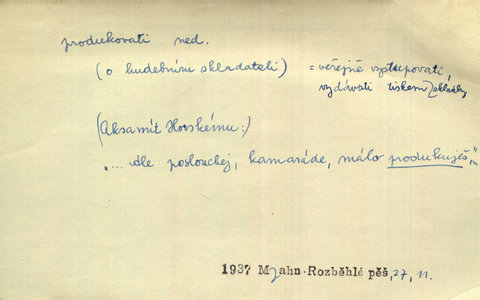 produkovati ned.
(o hudebním skladateli) = veřejně vystupovati,
vydávati tiskem skladby
(Aksamit Horskému:)
„... dle poslouchej, kamaráde, málo produkuješ,"...
1937 Mjahn-Rozběhlé pěš, 27, 11.